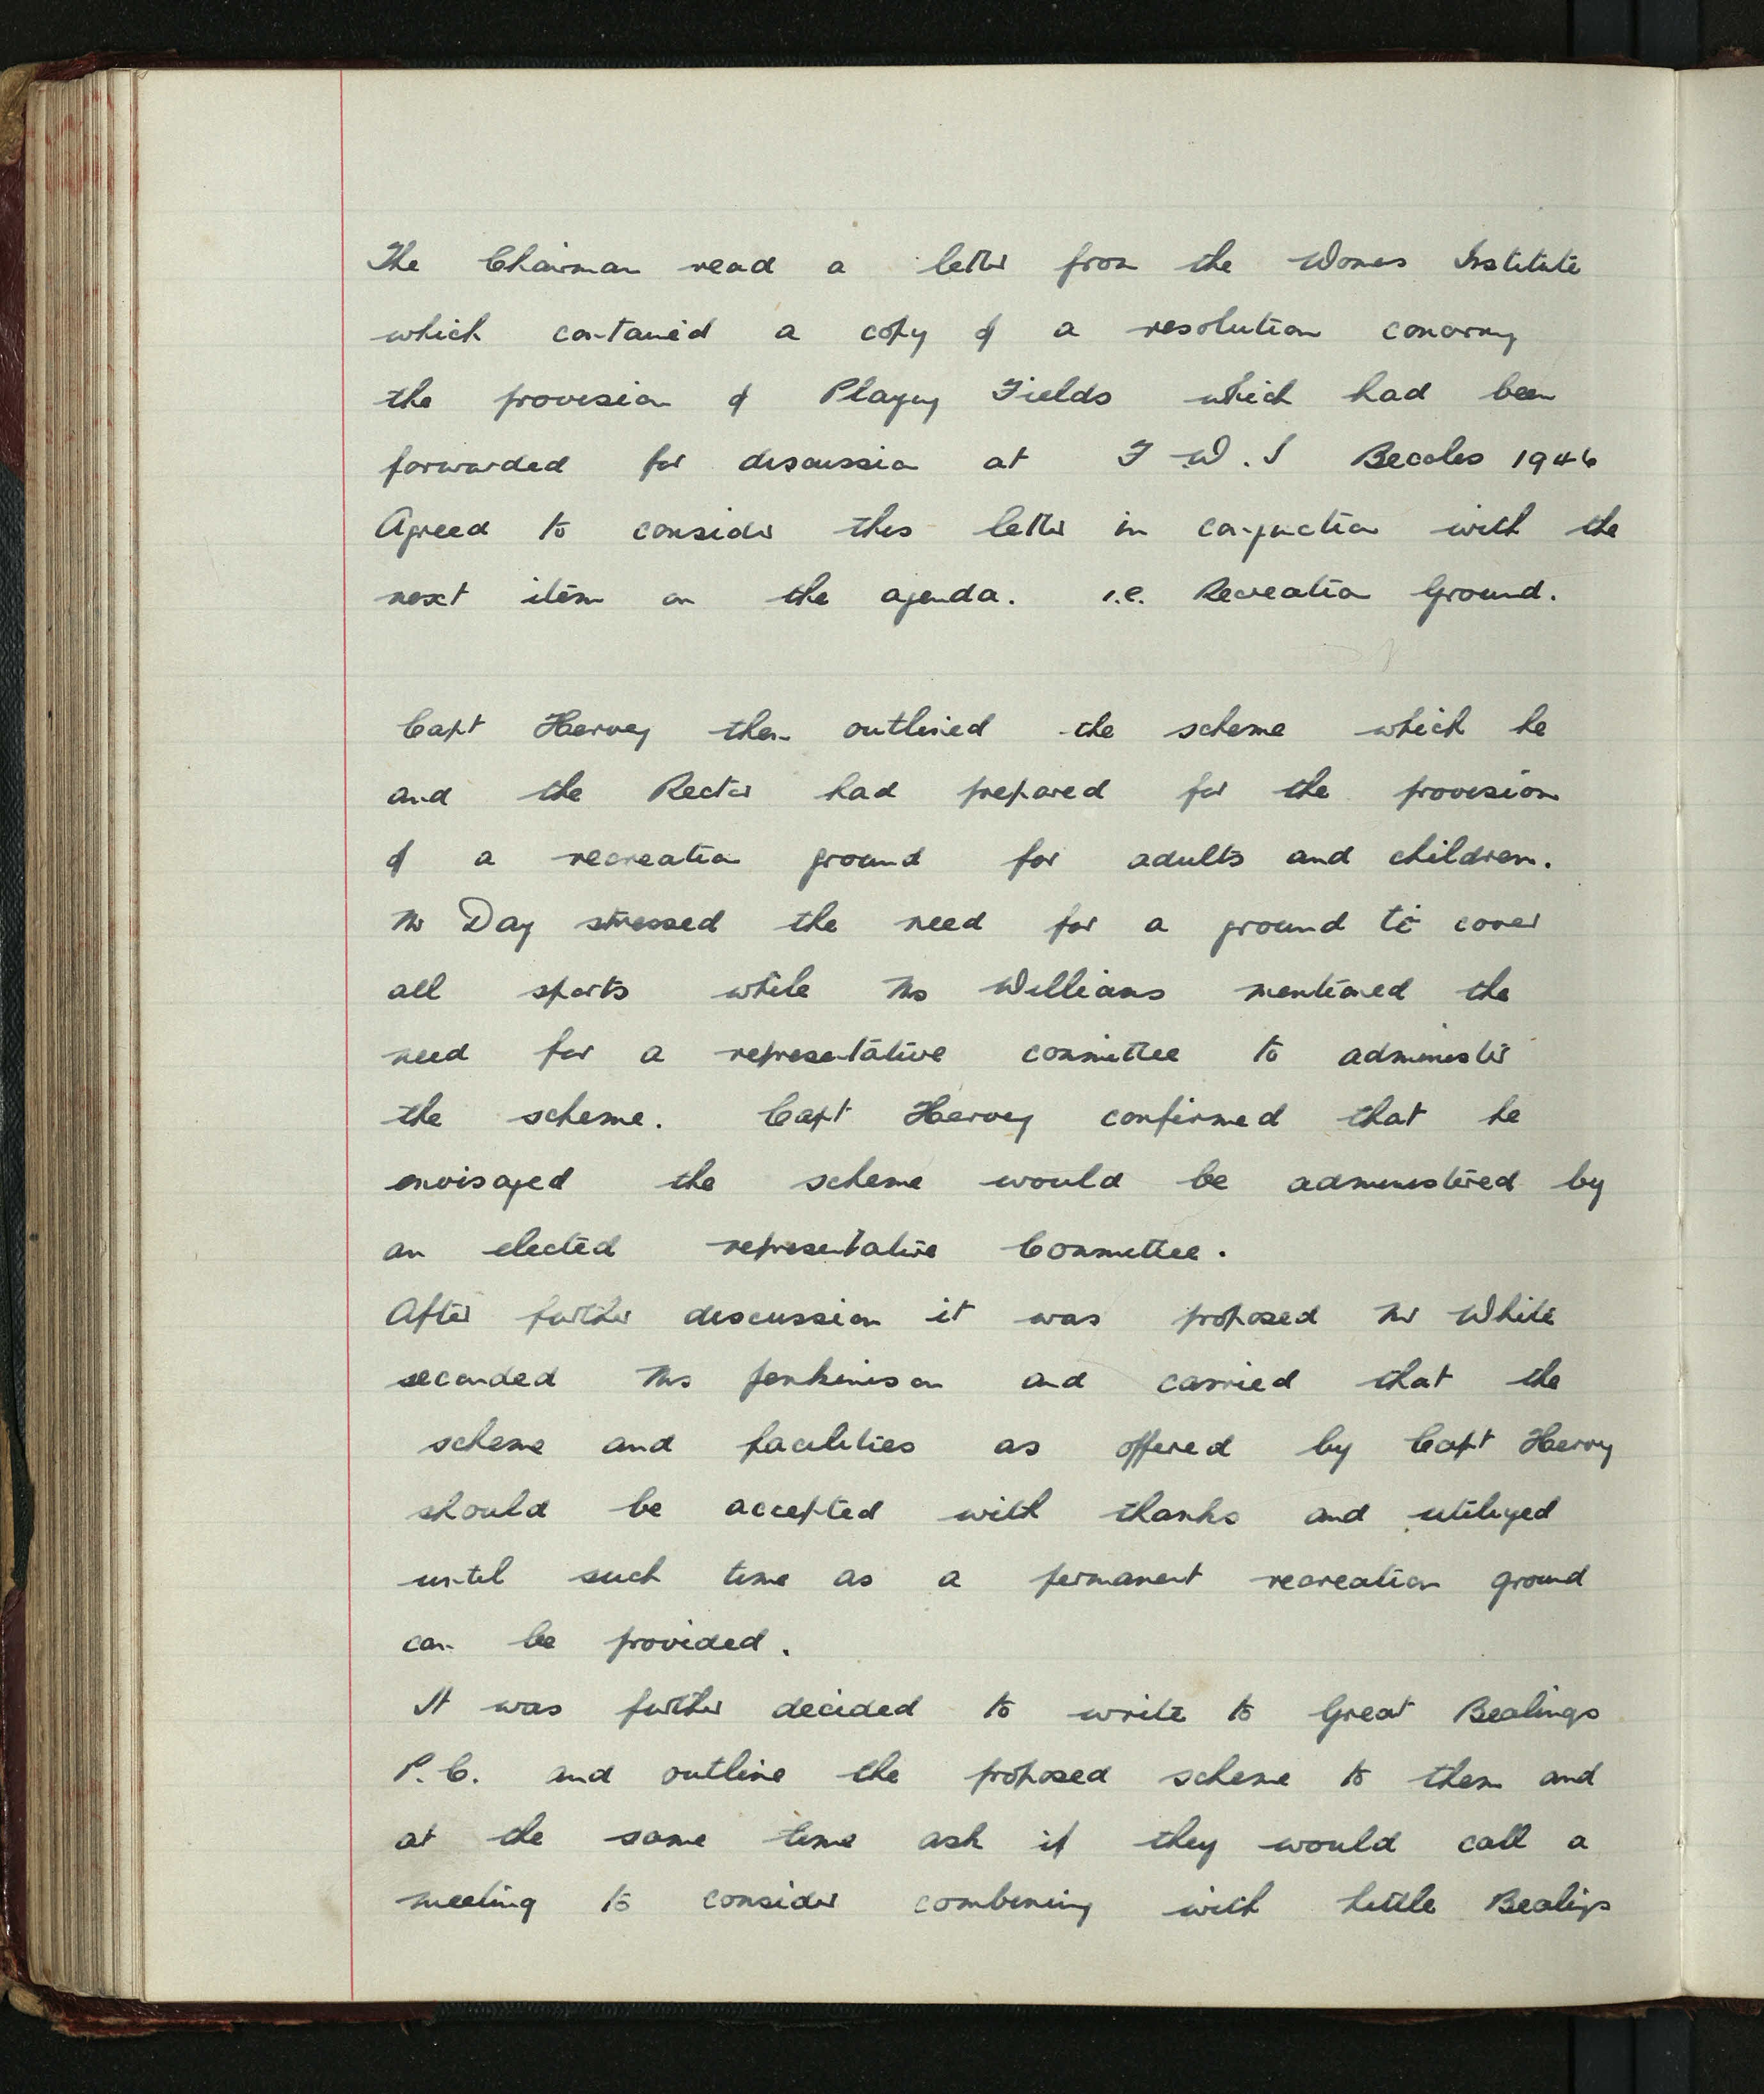 The Chairman read a letter from the Womens Institute
which contained a copy of a resolution concerning
the provision of Playing Fields which had been
forwarded for discussion at F W. I Beccles 1946
Agreed to consider this letter in conjunction with the
next item on the agenda. i.e. Recreation Ground.
Capt Hervey then outlined the scheme which he
and the Rector had prepared for the provision
of a recreation ground for adults and children.
Mr Day stressed the need for a ground to cover
all sports while Mrs Williams mentioned the
need for a representative committee to administer
the scheme. Capt Hervey confirmed that he
envisaged the scheme would be administered by
an elected representative Committee.
After further discussion it was proposed Mr White
seconded Mrs Jenkinson and carried that the
scheme and facilities as offered by Capt Hervey
should be accepted with thanks and utilized
until such time as a permanent recreation ground
can be provided.
It was further decided to write to Great Bealings
P.C. and outline the proposed scheme to them and
at the same time ask if they would call a
meeting to consider combining with Little Bealings